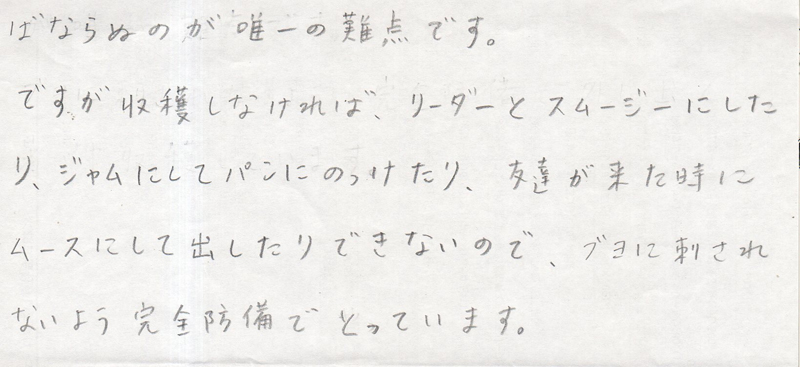 ばならぬのが唯一の難点です。
ですが収穫しなければ、リーダーとスムージーにした
り、ジャムにしてパンにのっけたり、友達が来た時に
ムースにして出したりできないので、ブヨに刺され
ないよう完全防備でとっています。